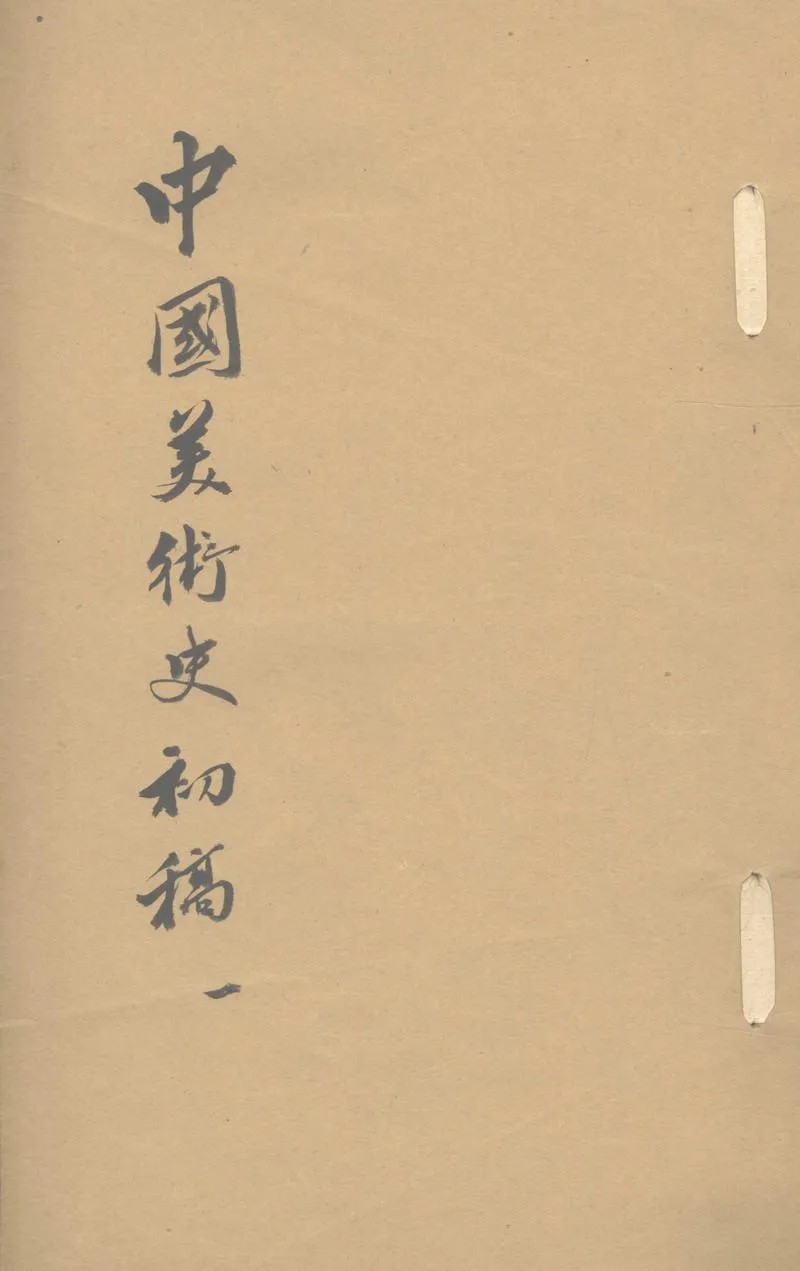 中國美術史初稿 一